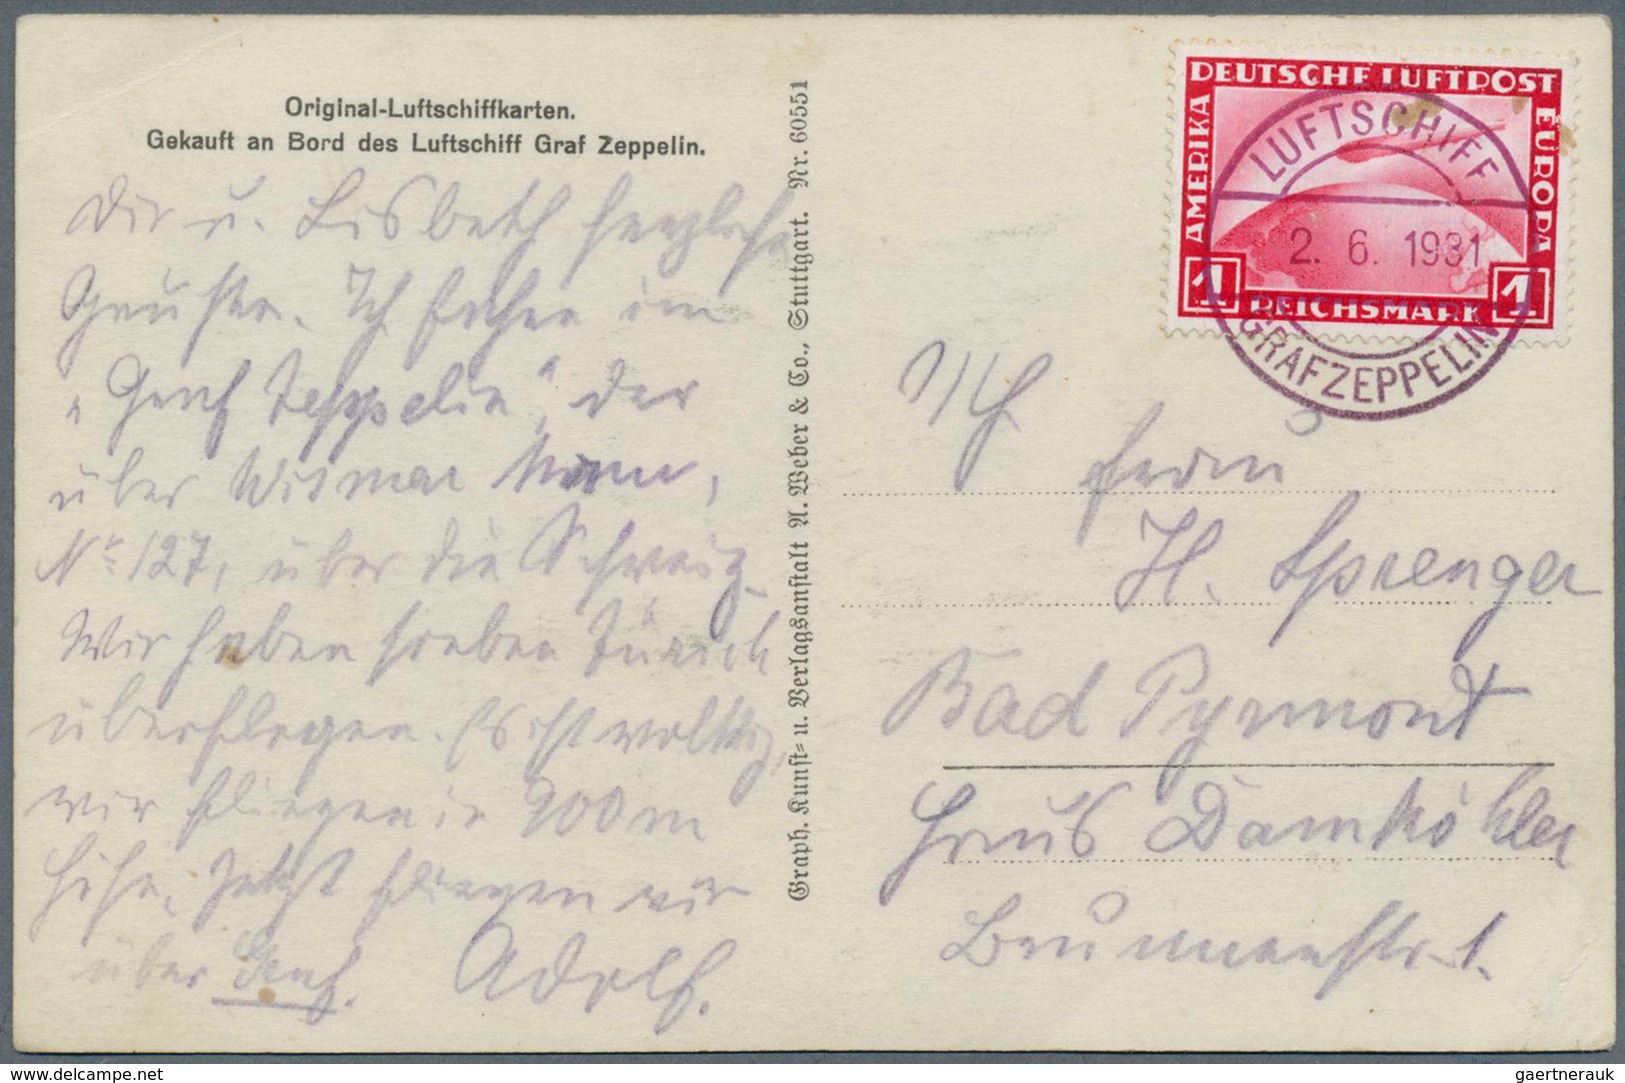 Original-Luftschiffkarten.
Gekauft an Bord des Luftschiff Graf Zeppelin.
Dir u. Lisbeth herzliche
Grüße. Ich fahre im
„Graf Zeppelin“, der
über Wismar kam,
No 127, über die Schweiz.
Wir haben soeben Zürich
überflogen. Es ist wolkig,
wir fliegen in 900 m
Höhe. Jetzt fliegen wir
über Genf. Adolf.
Graph. Kunst- u. Verlagsanstalt A. Weber & Co., Stuttgart. Nr. 60551
DEUTSCHE LUFTPOST
AMERIKA
EUROPA
1 REICHSMARK 1
LUFTSCHIFF
2. 6. 1931
GRAF ZEPPELIN
Frau
H. Sprenger
Bad Pyrmont
Haus Damköhler
Brunnenstr. 1.
delcampe.net
gaertnerauk